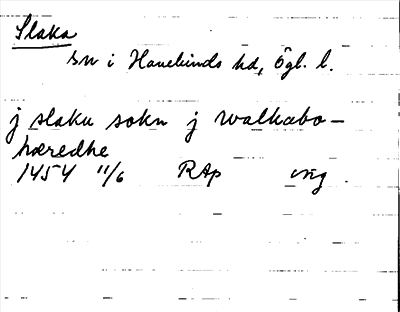 Slaka
sn i Hanekinds hd, Ögl. l.
j slaku sokn j walkabo-
hæredhe
1454 11/6 RAp orig.